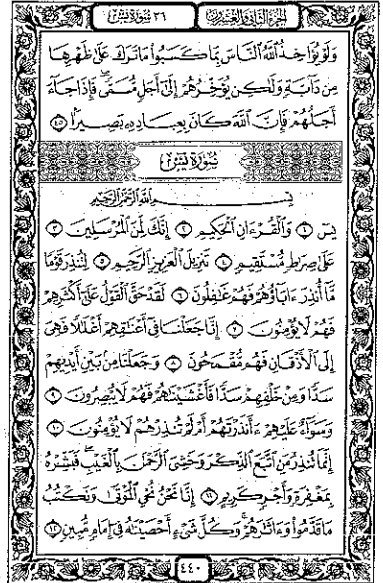 الجزء الثاني والعشرون ٣٦ سورة يس
وَلَوْ يُؤَاخِذُ ٱللَّهُ ٱلنَّاسَ بِمَا كَسَبُوا۟ مَا تَرَكَ عَلَىٰ ظَهْرِهَا
مِن دَآبَّةٍ وَلَٰكِن يُؤَخِّرُهُمْ إِلَىٰٓ أَجَلٍ مُّسَمًّى ۖ فَإِذَا جَآءَ
أَجَلُهُمْ فَإِنَّ ٱللَّهَ كَانَ بِعِبَادِهِۦ بَصِيرًۢا ٤٥
سورة يس
بِسْمِ ٱللَّهِ ٱلرَّحْمَٰنِ ٱلرَّحِيمِ
يسٓ ١ وَٱلْقُرْءَانِ ٱلْحَكِيمِ ٢ إِنَّكَ لَمِنَ ٱلْمُرْسَلِينَ ٣
عَلَىٰ صِرَٰطٍ مُّسْتَقِيمٍ ٤ تَنزِيلَ ٱلْعَزِيزِ ٱلرَّحِيمِ ٥ لِتُنذِرَ قَوْمًا
مَّآ أُنذِرَ ءَابَآؤُهُمْ فَهُمْ غَٰفِلُونَ ٦ لَقَدْ حَقَّ ٱلْقَوْلُ عَلَىٰٓ أَكْثَرِهِمْ
فَهُمْ لَا يُؤْمِنُونَ ٧ إِنَّا جَعَلْنَا فِىٓ أَعْنَٰقِهِمْ أَغْلَٰلًا فَهِىَ
إِلَى ٱلْأَذْقَانِ فَهُم مُّقْمَحُونَ ٨ وَجَعَلْنَا مِنۢ بَيْنِ أَيْدِيهِمْ
سَدًّا وَمِنْ خَلْفِهِمْ سَدًّا فَأَغْشَيْنَٰهُمْ فَهُمْ لَا يُبْصِرُونَ ٩
وَسَوَآءٌ عَلَيْهِمْ ءَأَنذَرْتَهُمْ أَمْ لَمْ تُنذِرْهُمْ لَا يُؤْمِنُونَ ١٠
إِنَّمَا تُنذِرُ مَنِ ٱتَّبَعَ ٱلذِّكْرَ وَخَشِىَ ٱلرَّحْمَٰنَ بِٱلْغَيْبِ ۖ فَبَشِّرْهُ
بِمَغْفِرَةٍ وَأَجْرٍ كَرِيمٍ ١١ إِنَّا نَحْنُ نُحْىِ ٱلْمَوْتَىٰ وَنَكْتُبُ
مَا قَدَّمُوا۟ وَءَاثَٰرَهُمْ ۚ وَكُلَّ شَىْءٍ أَحْصَيْنَٰهُ فِىٓ إِمَامٍ مُّبِينٍ ١٢
٤٤٠